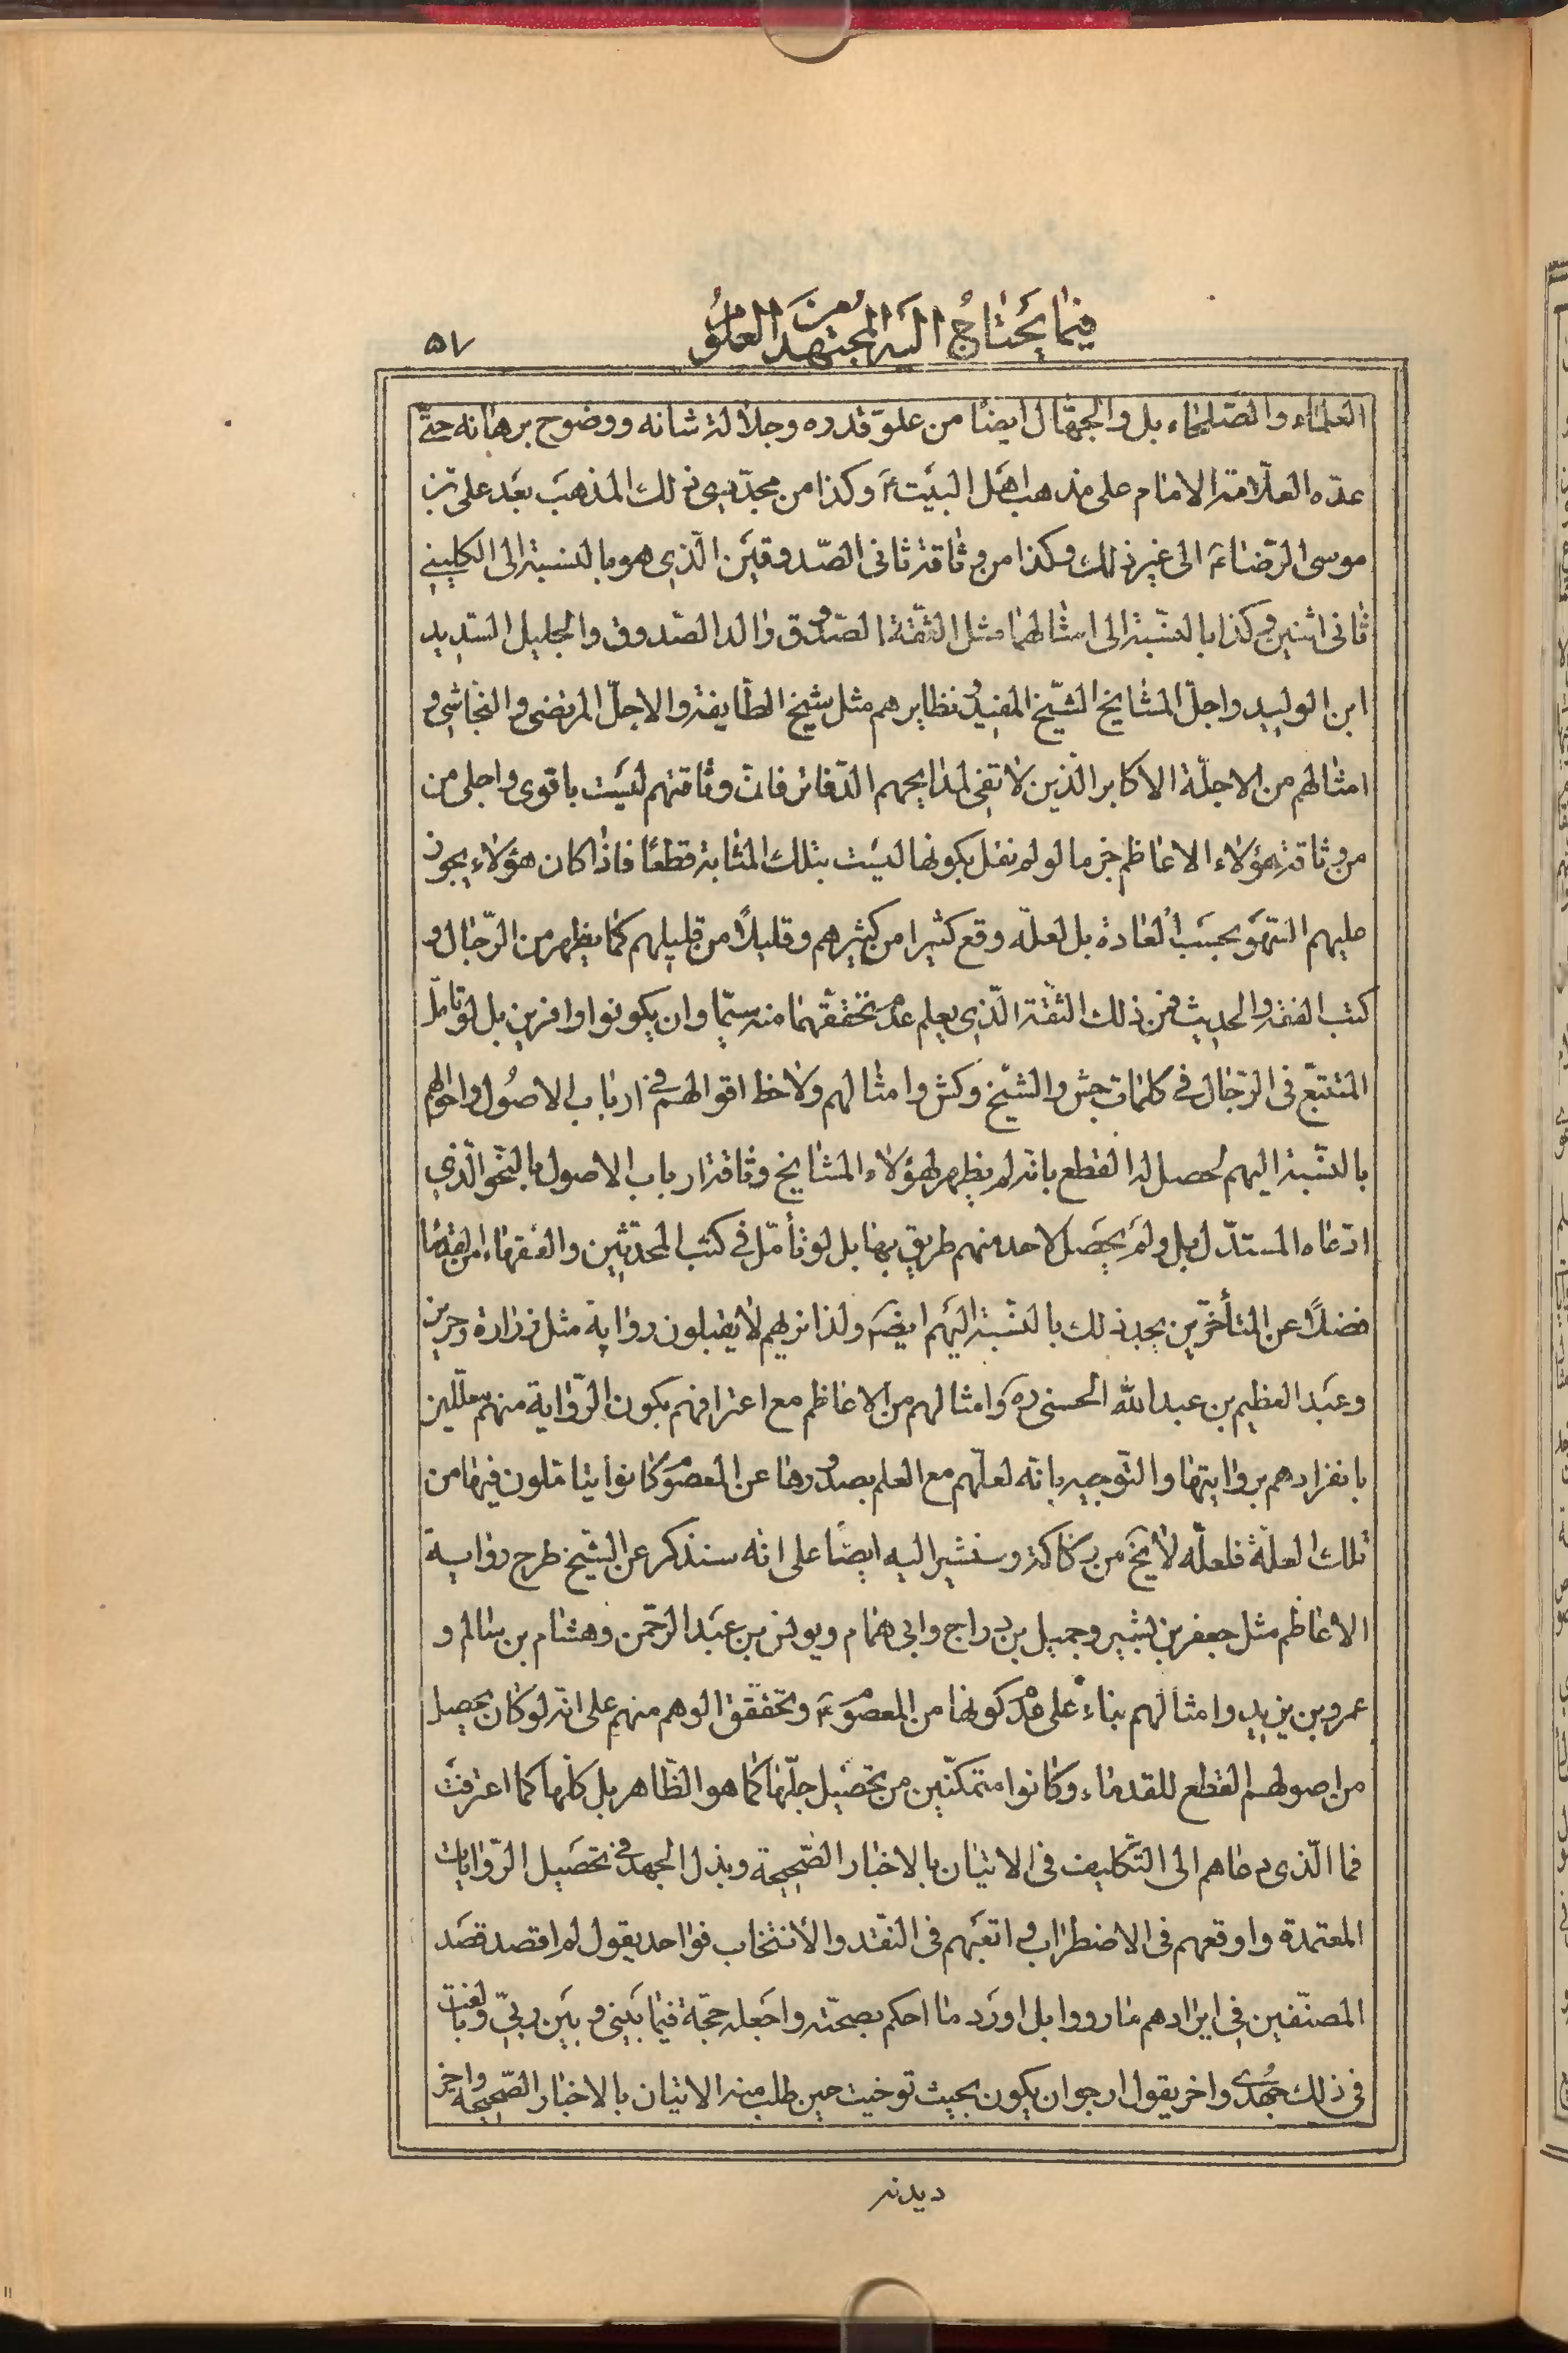 فيما يحتاج اليه المجتهد من العلوم
٥٧
العلماء والصلحاء بل والجهّال ايضا من علوّ قدره وجلالة شانه ووضوح برهانه حتّى
عدّه العلّامة الامام على مذهب اهل البيت ع وكذا من مجدّدى ذلك المذهب بعد على بن
موسى الرّضا ع الى غير ذلك وكذا من وثاقة ثانى الصّدوقين الّذى هو بالنسبة الى الكلينى
ثانى اثنين وكذا بالنّسبة الى امثالهما مثل الثّقة الصّدوق والد الصّدوق والجليل السّديد
ابن الوليد واجلّ المشايخ الشّيخ المفيد ونظايرهم مثل شيخ الطّايفة والاجلّ المرتضى والنّجاشى و
امثالهم من الاجلّة الاكابر الّذين لا تفى لمدايحهم الدّفاتر فانّ وثاقتهم ليست باقوى واجلى من
من وثاقة هؤلاء الاعاظم جزما لو لم نقل بكونها ليست بتلك المثابة قطعًا فاذا كان هؤلاء يجوز
عليهم السّهو بحسب العادة بل لعلّه وقع كثيرا من كثيرهم وقليلًا من قليلهم كما يظهر من الرّجال و
كتب الفقه والحديث فمن ذلك الثّقة الّذى يعلم عدم تحقّقهما منه سيّما وان يكونوا وافرين بل لو تامّل
المتتبّع فى الرّجال فى كلمات جش والشّيخ وكش وامثالهم ولاحظ اقوالهم فى ارباب الاصُول واحوالهم
بالنّسبة اليهم لحصل له القطع بانّه لم يظهر لهؤلاء المشايخ وثاقة ارباب الاصول بالنّحو الّذى
ادّعاه المستدّل بل ولم يحصل لاحد منهم طريق بها بل لو تأمّل فى كتب المحدّثين والفقهاء من القدما
فضلًا عن المتأخّرين يجد ذلك بالنّسبة اليهم ايضَ ولذا نريهم لا يقبلون رواية مثل زرارة وحريز
وعبد العظيم بن عبد الله الحسنى ره وامثالهم من الاعاظم مع اعترافهم بكون الرّواية منهم معلّلين
بانفرادهم بروايتها والتّوجيه بانّه لعلّهم مع العلم بصدورها عن المعصوم كانوا يتاملون فيها من
تلك العلّة فلعلّه لا يخ من ركاكة وسنشير اليه ايضًا على انّه سنذكر عن الشّيخ طرح رواية
الاعاظم مثل جعفر بن بشير وجميل بن دراج وابى همام ويونس بن عبد الرّحمن وهشام بن سالم و
عمرو بن يزيد وامثالهم بناءً على عدم كونها من المعصوم ع وتحقّق الوهم منهم على انّه لو كان يحصل
من اصولهم القطع للقدماء وكانوا متمكّنين من تحصيل جلّها كما هو الظّاهر بل كلّها كما اعترفت
فما الّذى دعاهم الى التّكليف فى الاتيان بالاخبار الصّحيحة وبذل الجهد فى تحصيل الرّوايات
المعتمدة واوقعهم فى الاضطراب واتعبهم فى النّقد والانتخاب فواحد يقول لم اقصد قصد
المصنّفين فى ايرادهم ما رووا بل اورد ما احكم بصحّته واجعله حجّة فيما بينى وبين ربّى وبالغت
فى ذلك جهدى واخر يقول ارجو ان يكون بحيث توخيت حين طلب منه الاتيان بالاخبار الصّحيحة واخر
ديدنه